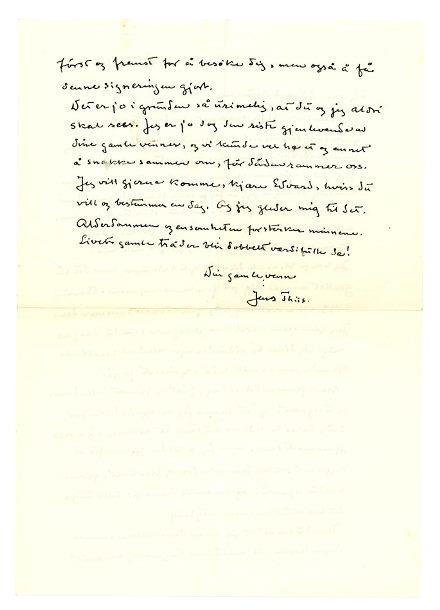 først og fremst for å besøke dig, men også å få
denne signeringen gjort.
Det er jo i grunden så urimelig, at du og jeg aldri
skal sees. Jeg er jo dog den siste gjenlevende av
dine gamle venner, og vi kunde vel ha et og annet
å snakke sammen om, før døden rammer oss.
Jeg vill gjerne komme, kjære Edvard, hviss du
vill og bestemmer en dag. Og jeg gleder mig til det.
Alderdommen og ensomheten forsterker minnene.
Livets gamle tråder blir dobbelt verdifulle da!
Din gamle venn
Jens Thiis.